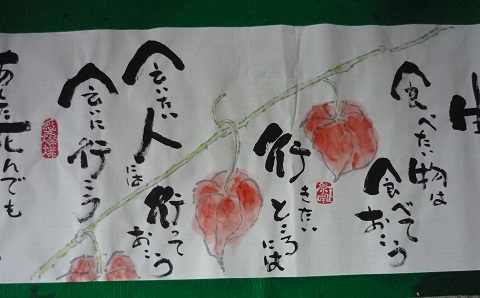 食べたい物は
食べて
おこう
行きたい
ところには
行って
おこう
会いたい
人には
会いに行こう
あした死んでも